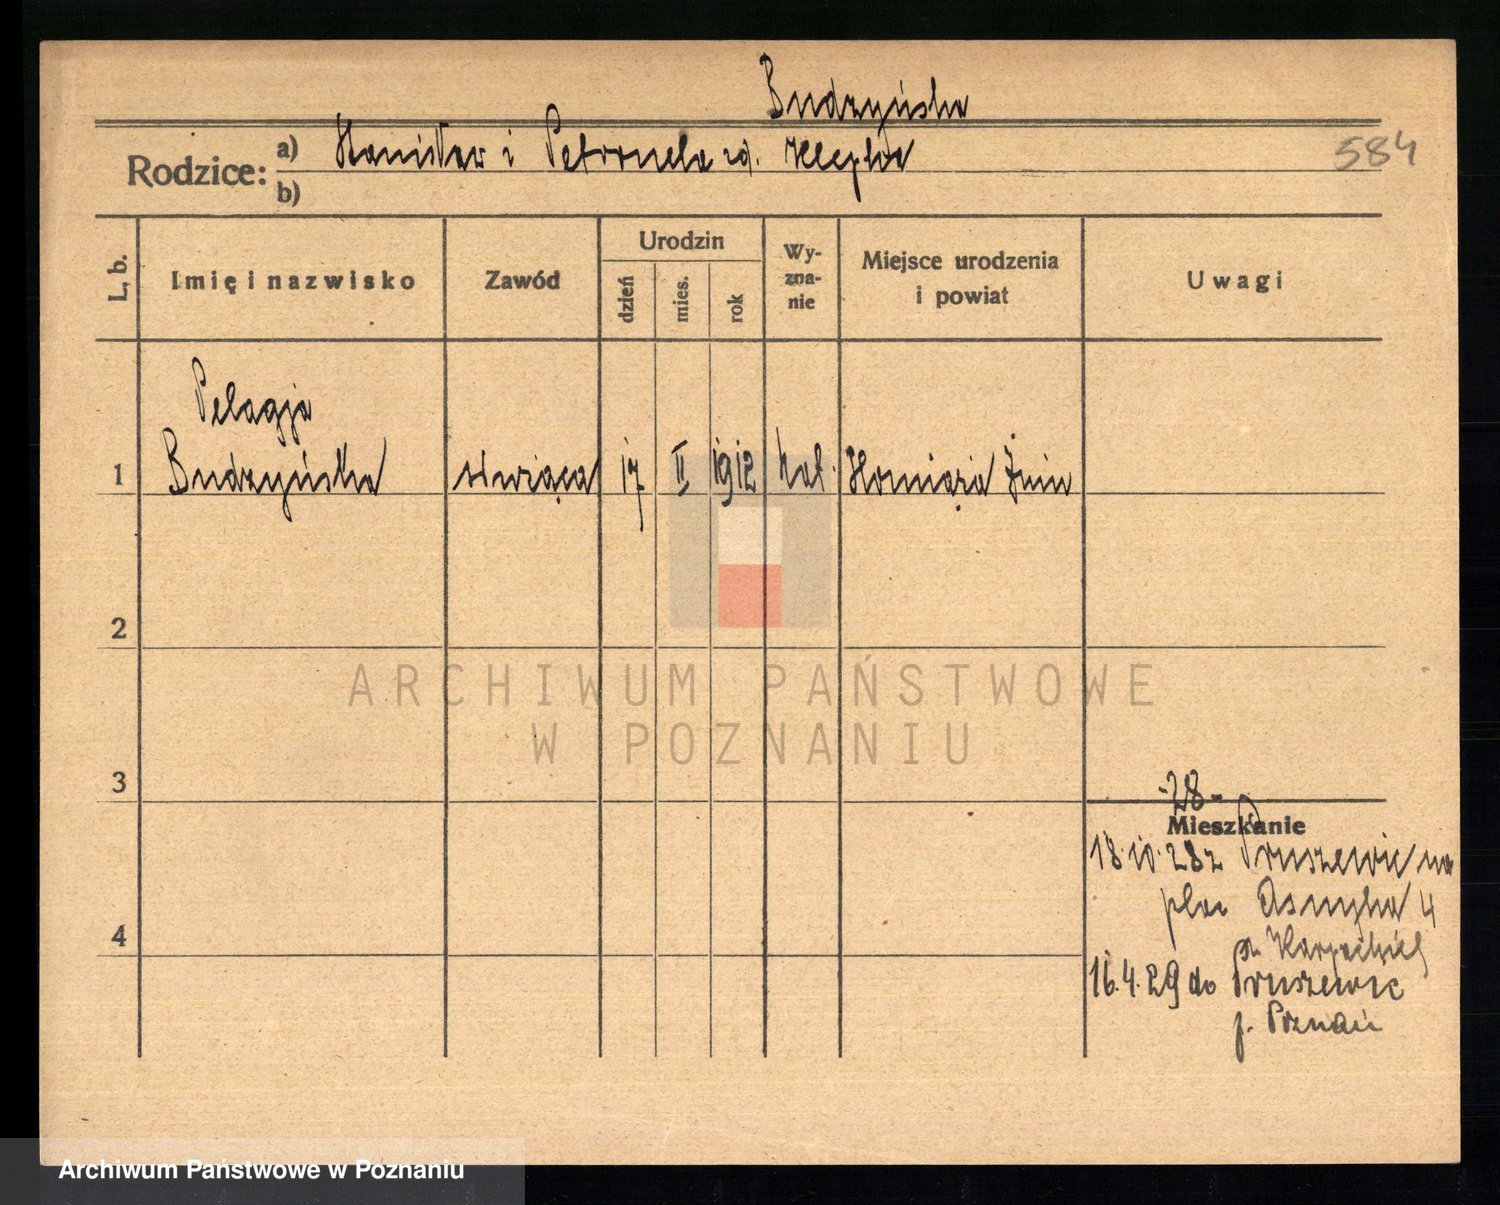 Budzyńska
584
Rodzice: a) Stanisław i Petronela zd.
b)
L. b. Imię i nazwisko Zawód Urodzin dzień mies. rok Wy-zna-nie Miejsce urodzenia i powiat Uwagi
Pelagja
1 Budzyńska służąca 17 II 1912 kat. Żnin
2
ARCHIWUM PAŃSTWOWE
W POZNANIU
3
-28-
Mieszkanie
18.10.28 z Pruszewic na
plac Asnyka 4
4
16.4.29 do Pruszewic
p. Poznań
Archiwum Państwowe w Poznaniu